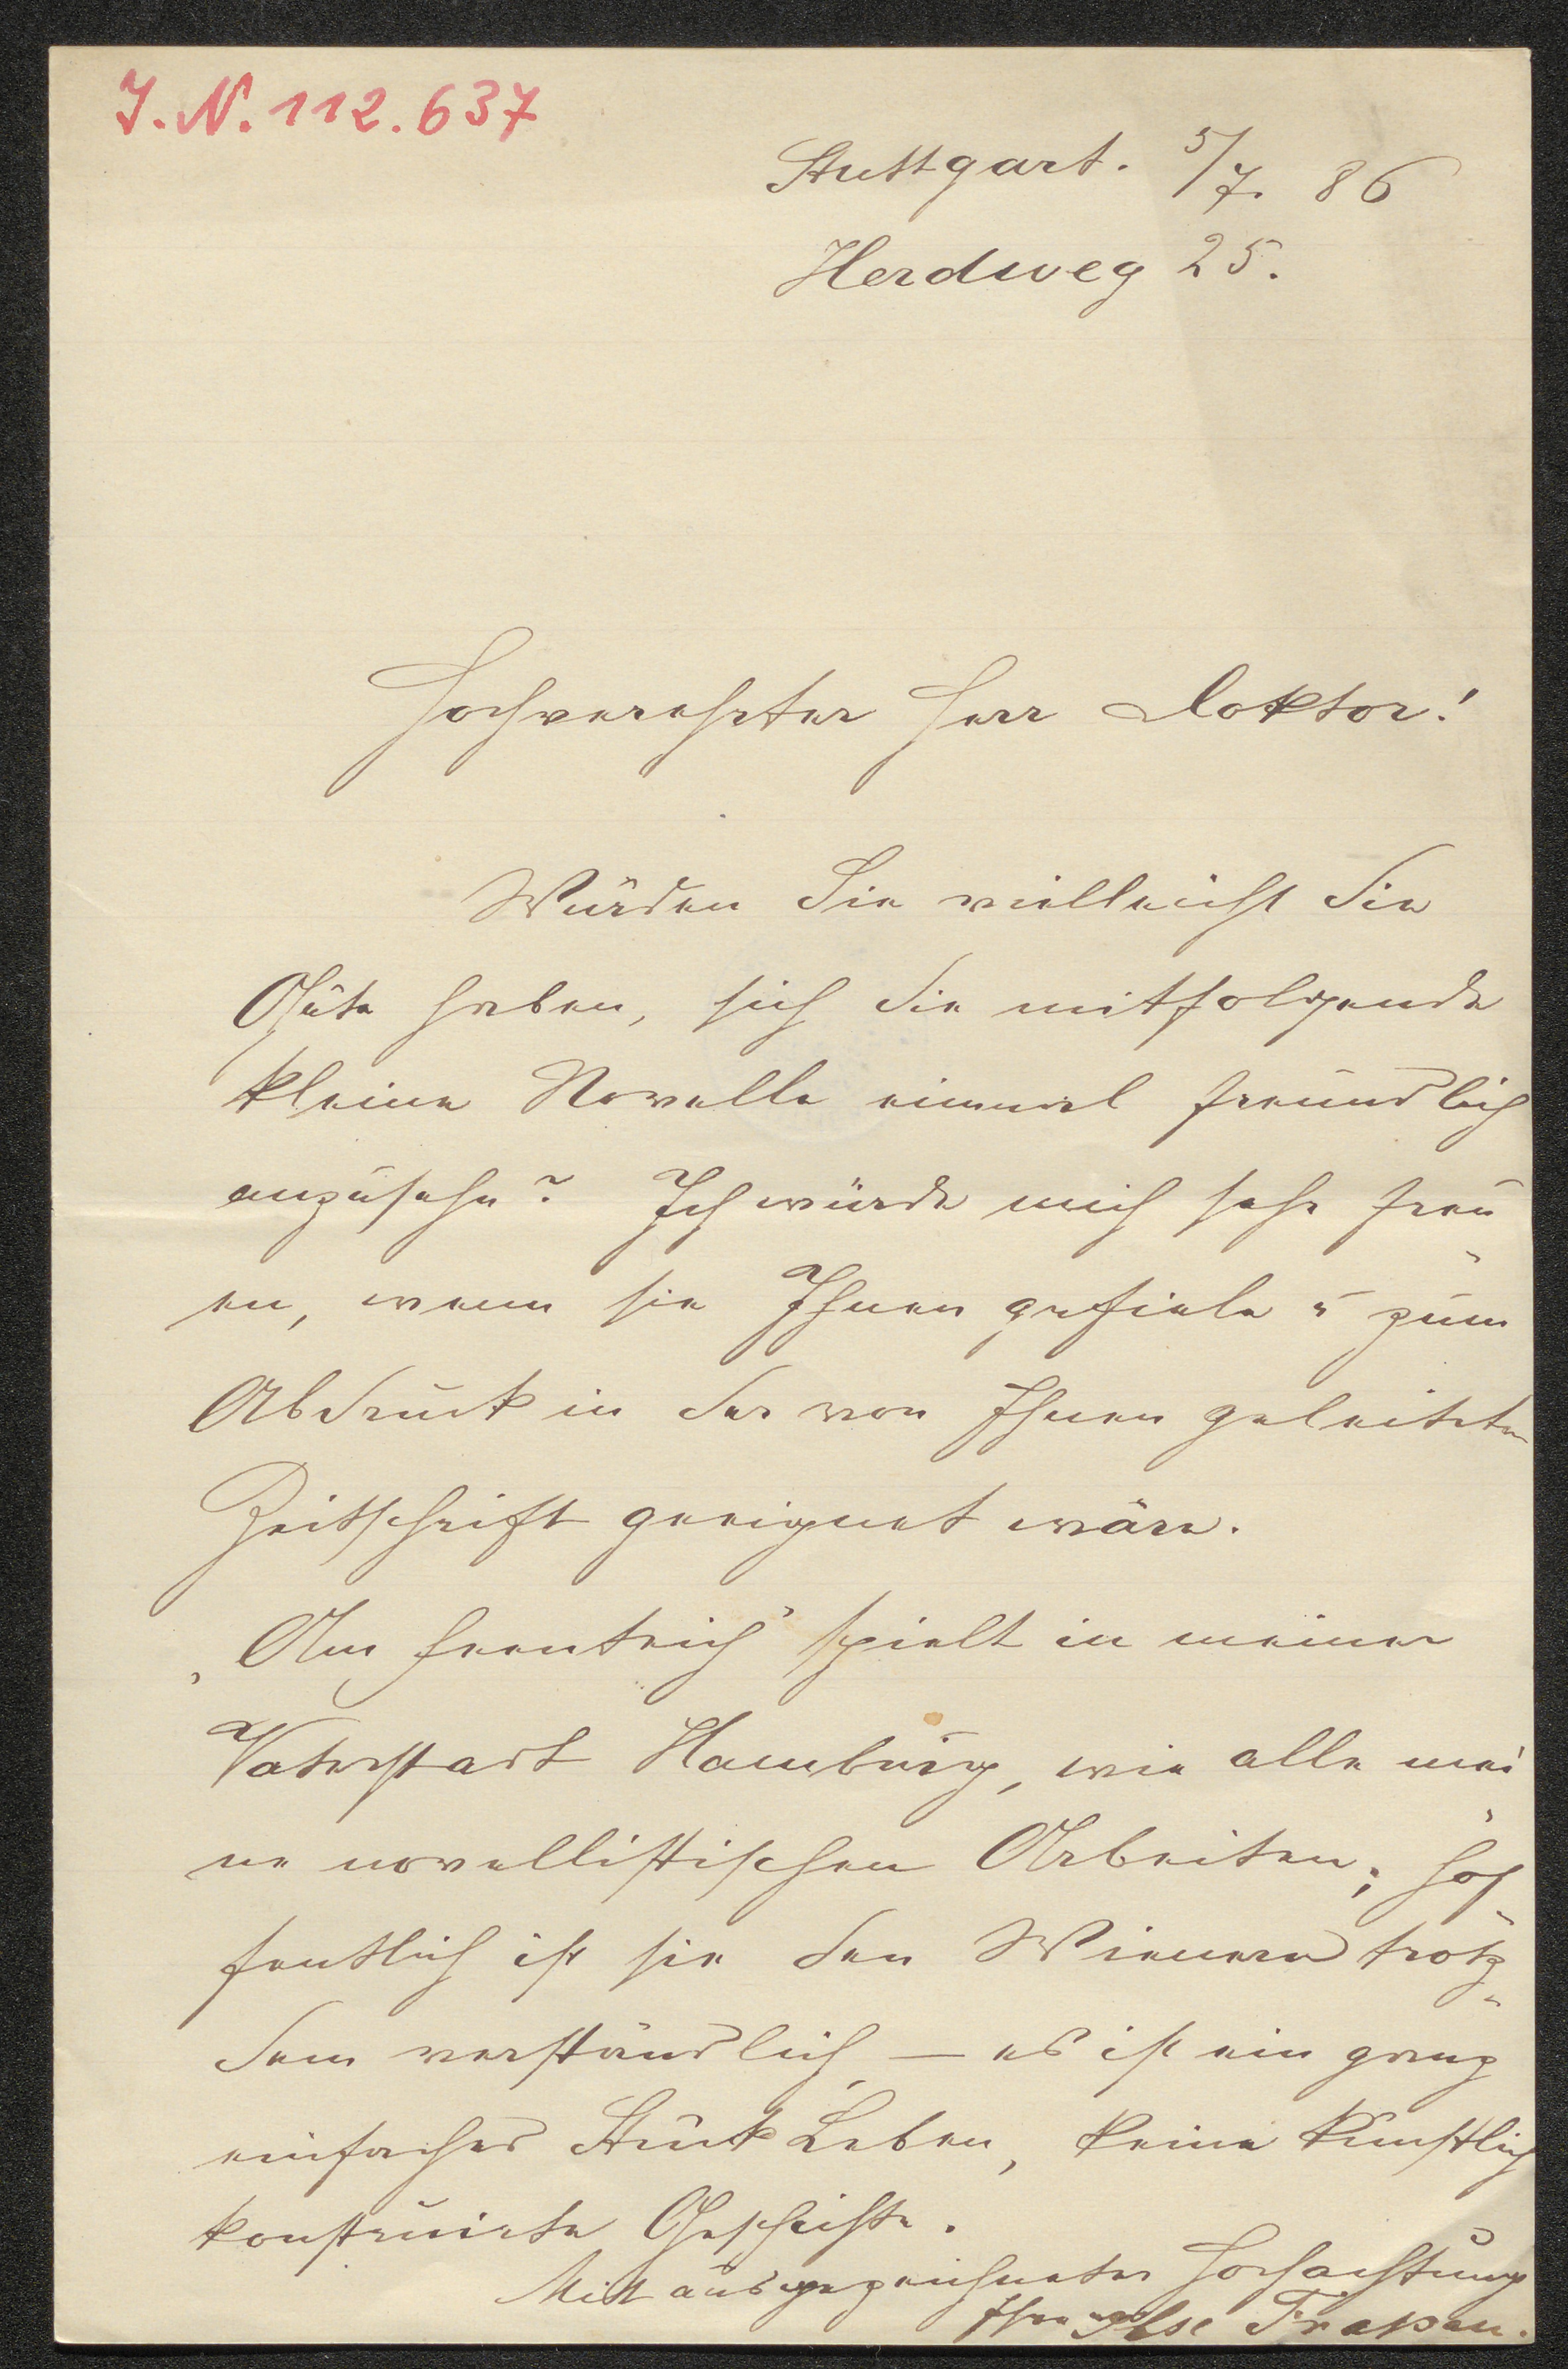 J. N. 112.637
Stuttgart. 5/7. 86
Herdweg 25.
Hochverehrter Herr Doktor!
Würden Sie vielleicht die
Güte haben, sich die mitfolgende
kleine Novelle einmal freundlich
anzusehn? Ich würde mich sehr freu-
en, wenn sie Ihnen gefiele u zum
Abdruck in der von Ihnen geleiteten
Zeitschrift geeignet wäre.
„Am Feenteich“ spielt in meiner
Vaterstadt Hamburg, wie alle mei-
ne novellistischen Arbeiten; hof-
fentlich ist sie den Wienern trotz-
dem verständlich – es ist ein ganz
einfaches Stück Leben, keine künstlich
konstruirte Geschichte.
Mit ausgezeichneter Hochachtung
Ihre Ilse Frapan.